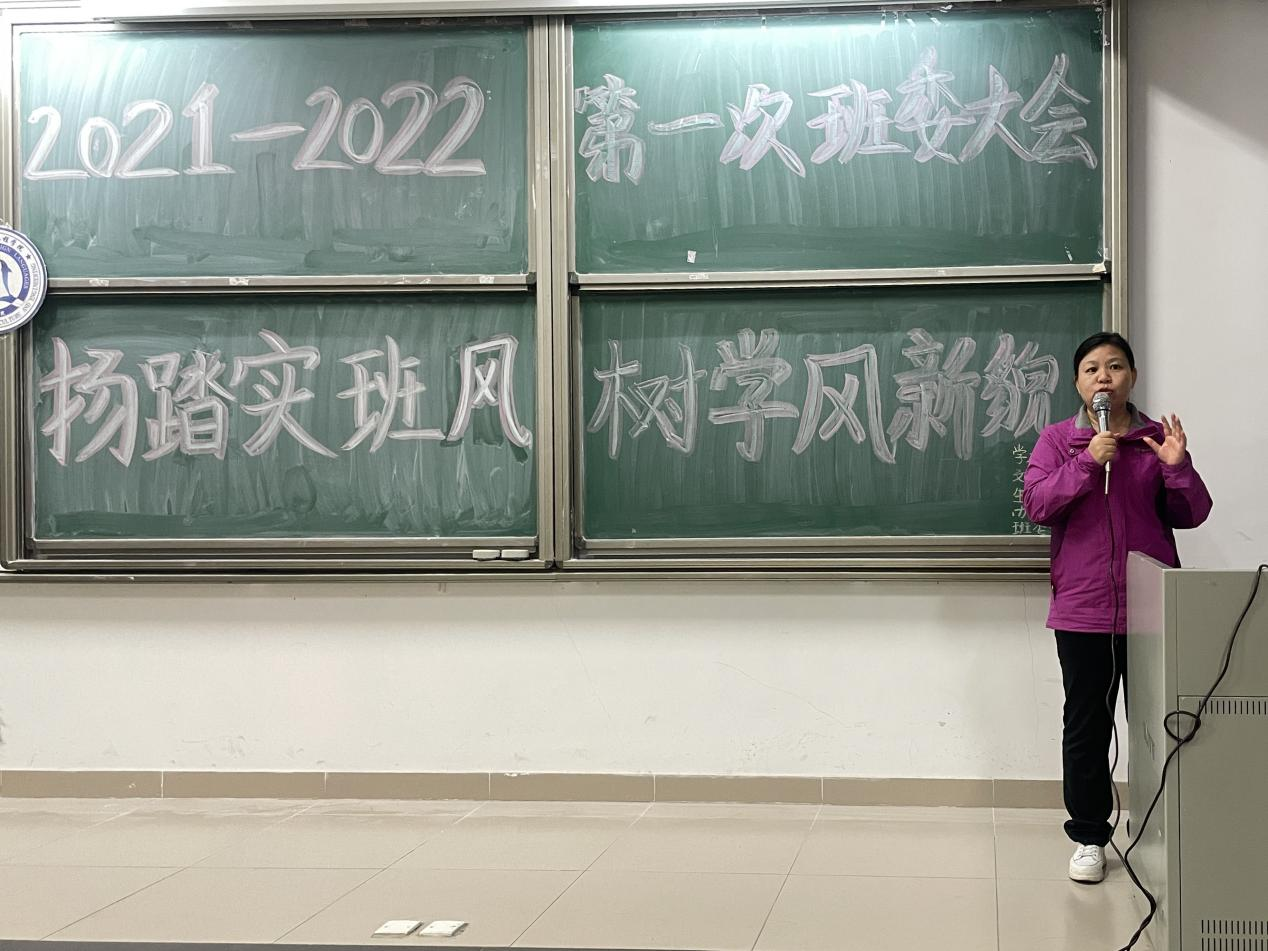 2021-2022
第一次班委大会
扬踏实班风
树学风新貌
学
文
生
班